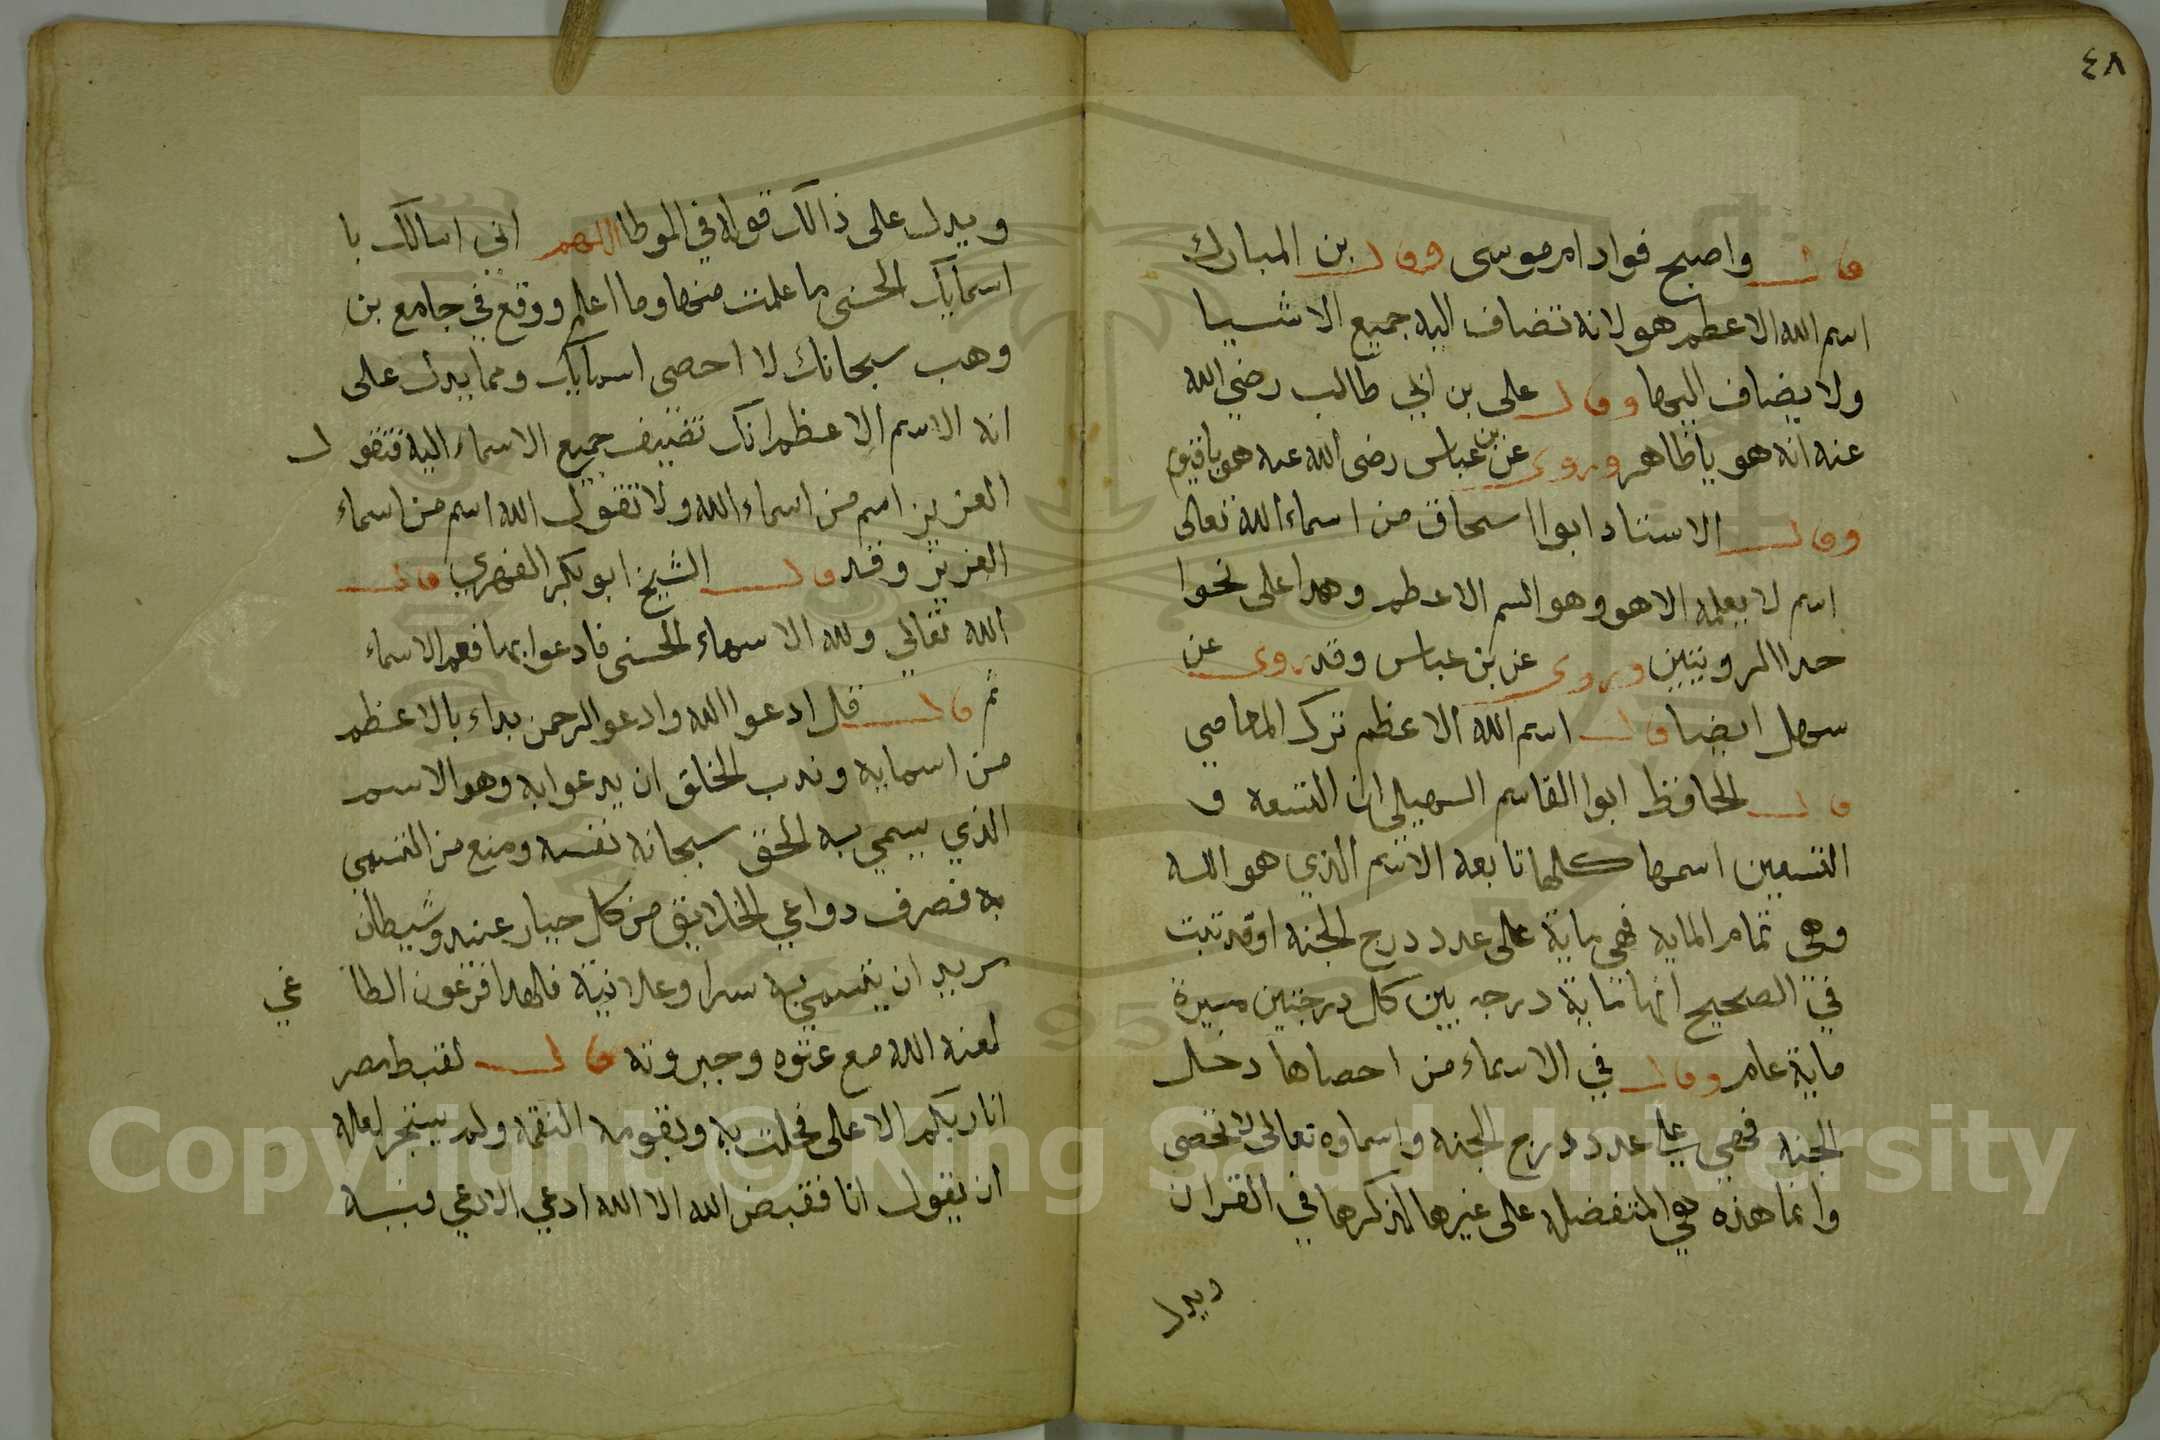 ٤٨
قال واصبح فواد ام موسى وقال بن المبارك
اسم الله الاعظم هو لانه تضاف اليه جميع الاشيا
ولا يضاف اليها وقال على بن ابي طالب رضي الله
عنه انه هو يا ظاهر وروى عن بن عباس رضى الله عنه هو يا قيوم
وقال الاستاد ابوا اسحاق من اسماء الله تعالى
اسم لا يعلمه الا هو وهو السم الاعظم وهدا على نحوا
حدا الروبتين وروى عن بن عباس وقد روى عن
سهل ايضا قال اسم الله الاعظم ترك المعاصي
قال الحافظ ابوا القاسم السهيلي ان التسعه و
التسعين اسمها كلها تابعة الاسم الذي هو الله
وهي تمام الماية فهي ماية على عدد درج الجنه اوقد تبت
في الصحيح انها ماية درجه بين كل درجتين مسيرة
ماية عام وقال في الاسماء من احصاها دخل
الجنه فهي على عدد درج الجنه واسماوه تعالى لا تحصى
وانما هذه هي المتفضله على غيرها لذكرها في القران
ويدل
ويدل على ذالك قوله في الموطا اللهم اني اسالك با
اسمايك الحسنى ما علمت منها وما اعلم ووقع في جامع بن
وهب سبحانك لا احصى اسمايك ومما يدل على
انه الاسم الاعظم انك تضيف جميع الاسماء اليه فتقول
العزيز اسم من اسماء الله ولا تقول الله اسم من اسماء
العزيز وقد قال الشيخ ابو بكر الفهري قال
الله تعالي ولله الاسماء الحسنى فادعوا بها فعم الاسماء
ثم قال قل ادعوا الله وادعو الرحمن بداء بالاعظم
من اسمايه وندب الخلق ان يدعوا به وهو الاسم
الذي يسمي به الحق سبحانه نفسه ومنع من التسمي
به فصرف دواعي الخلايق من كل جبار عنيد وشيطان
مريد ان يتسمي به سرا وعلانية فلهدا فرعون الطا غي
لعنه الله مع عتوه وجبروته قال لقبط مصر
انا ربكم الاعلى فحلت به وبقومه النقمه ولم يتجر لعله
ان يقول انا فقبض الله الا الله ادعي الادعي